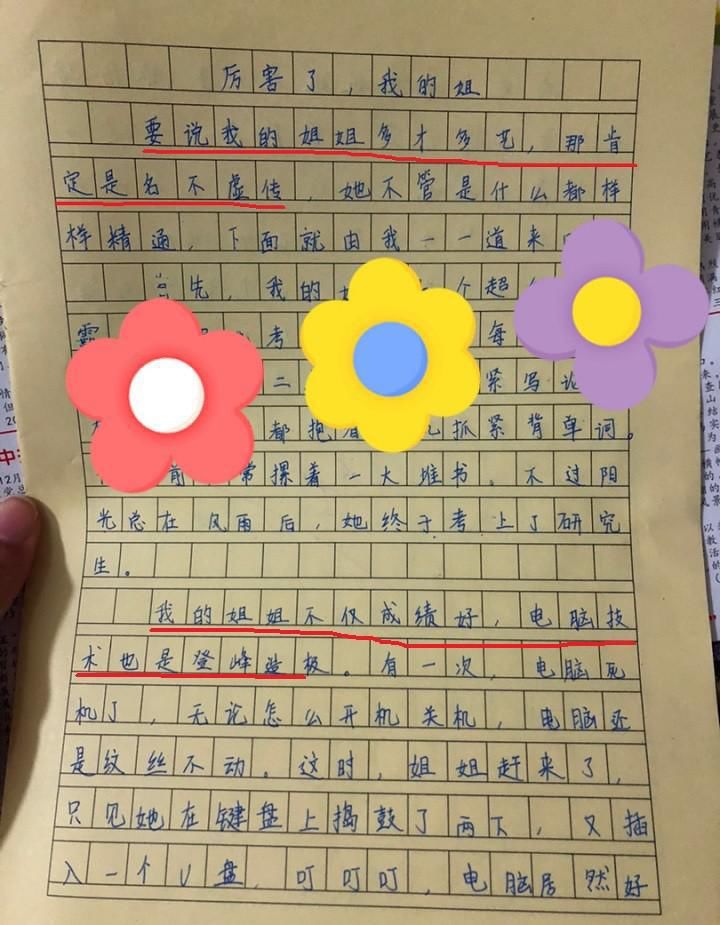 厉害了，我的姐
要说我的姐姐多才多艺，那肯
定是名不虚传，她不管是什么都样
样精通，下面就由我一一道来
首先，我的 个超
霸 考 每
二 紧写论
都抱着 抓紧背单词。
前 常摞着一大堆书。不过阳
光总在风雨后，她终于考上了研究
生。
我的姐姐不仅成绩好，电脑技
术也是登峰造极。有一次，电脑死
机了，无论怎么开机关机，电脑还
是纹丝不动。这时，姐姐赶来了，
只见她在键盘上捣鼓了两下，又插
入一个U盘，叮叮叮，电脑居然好